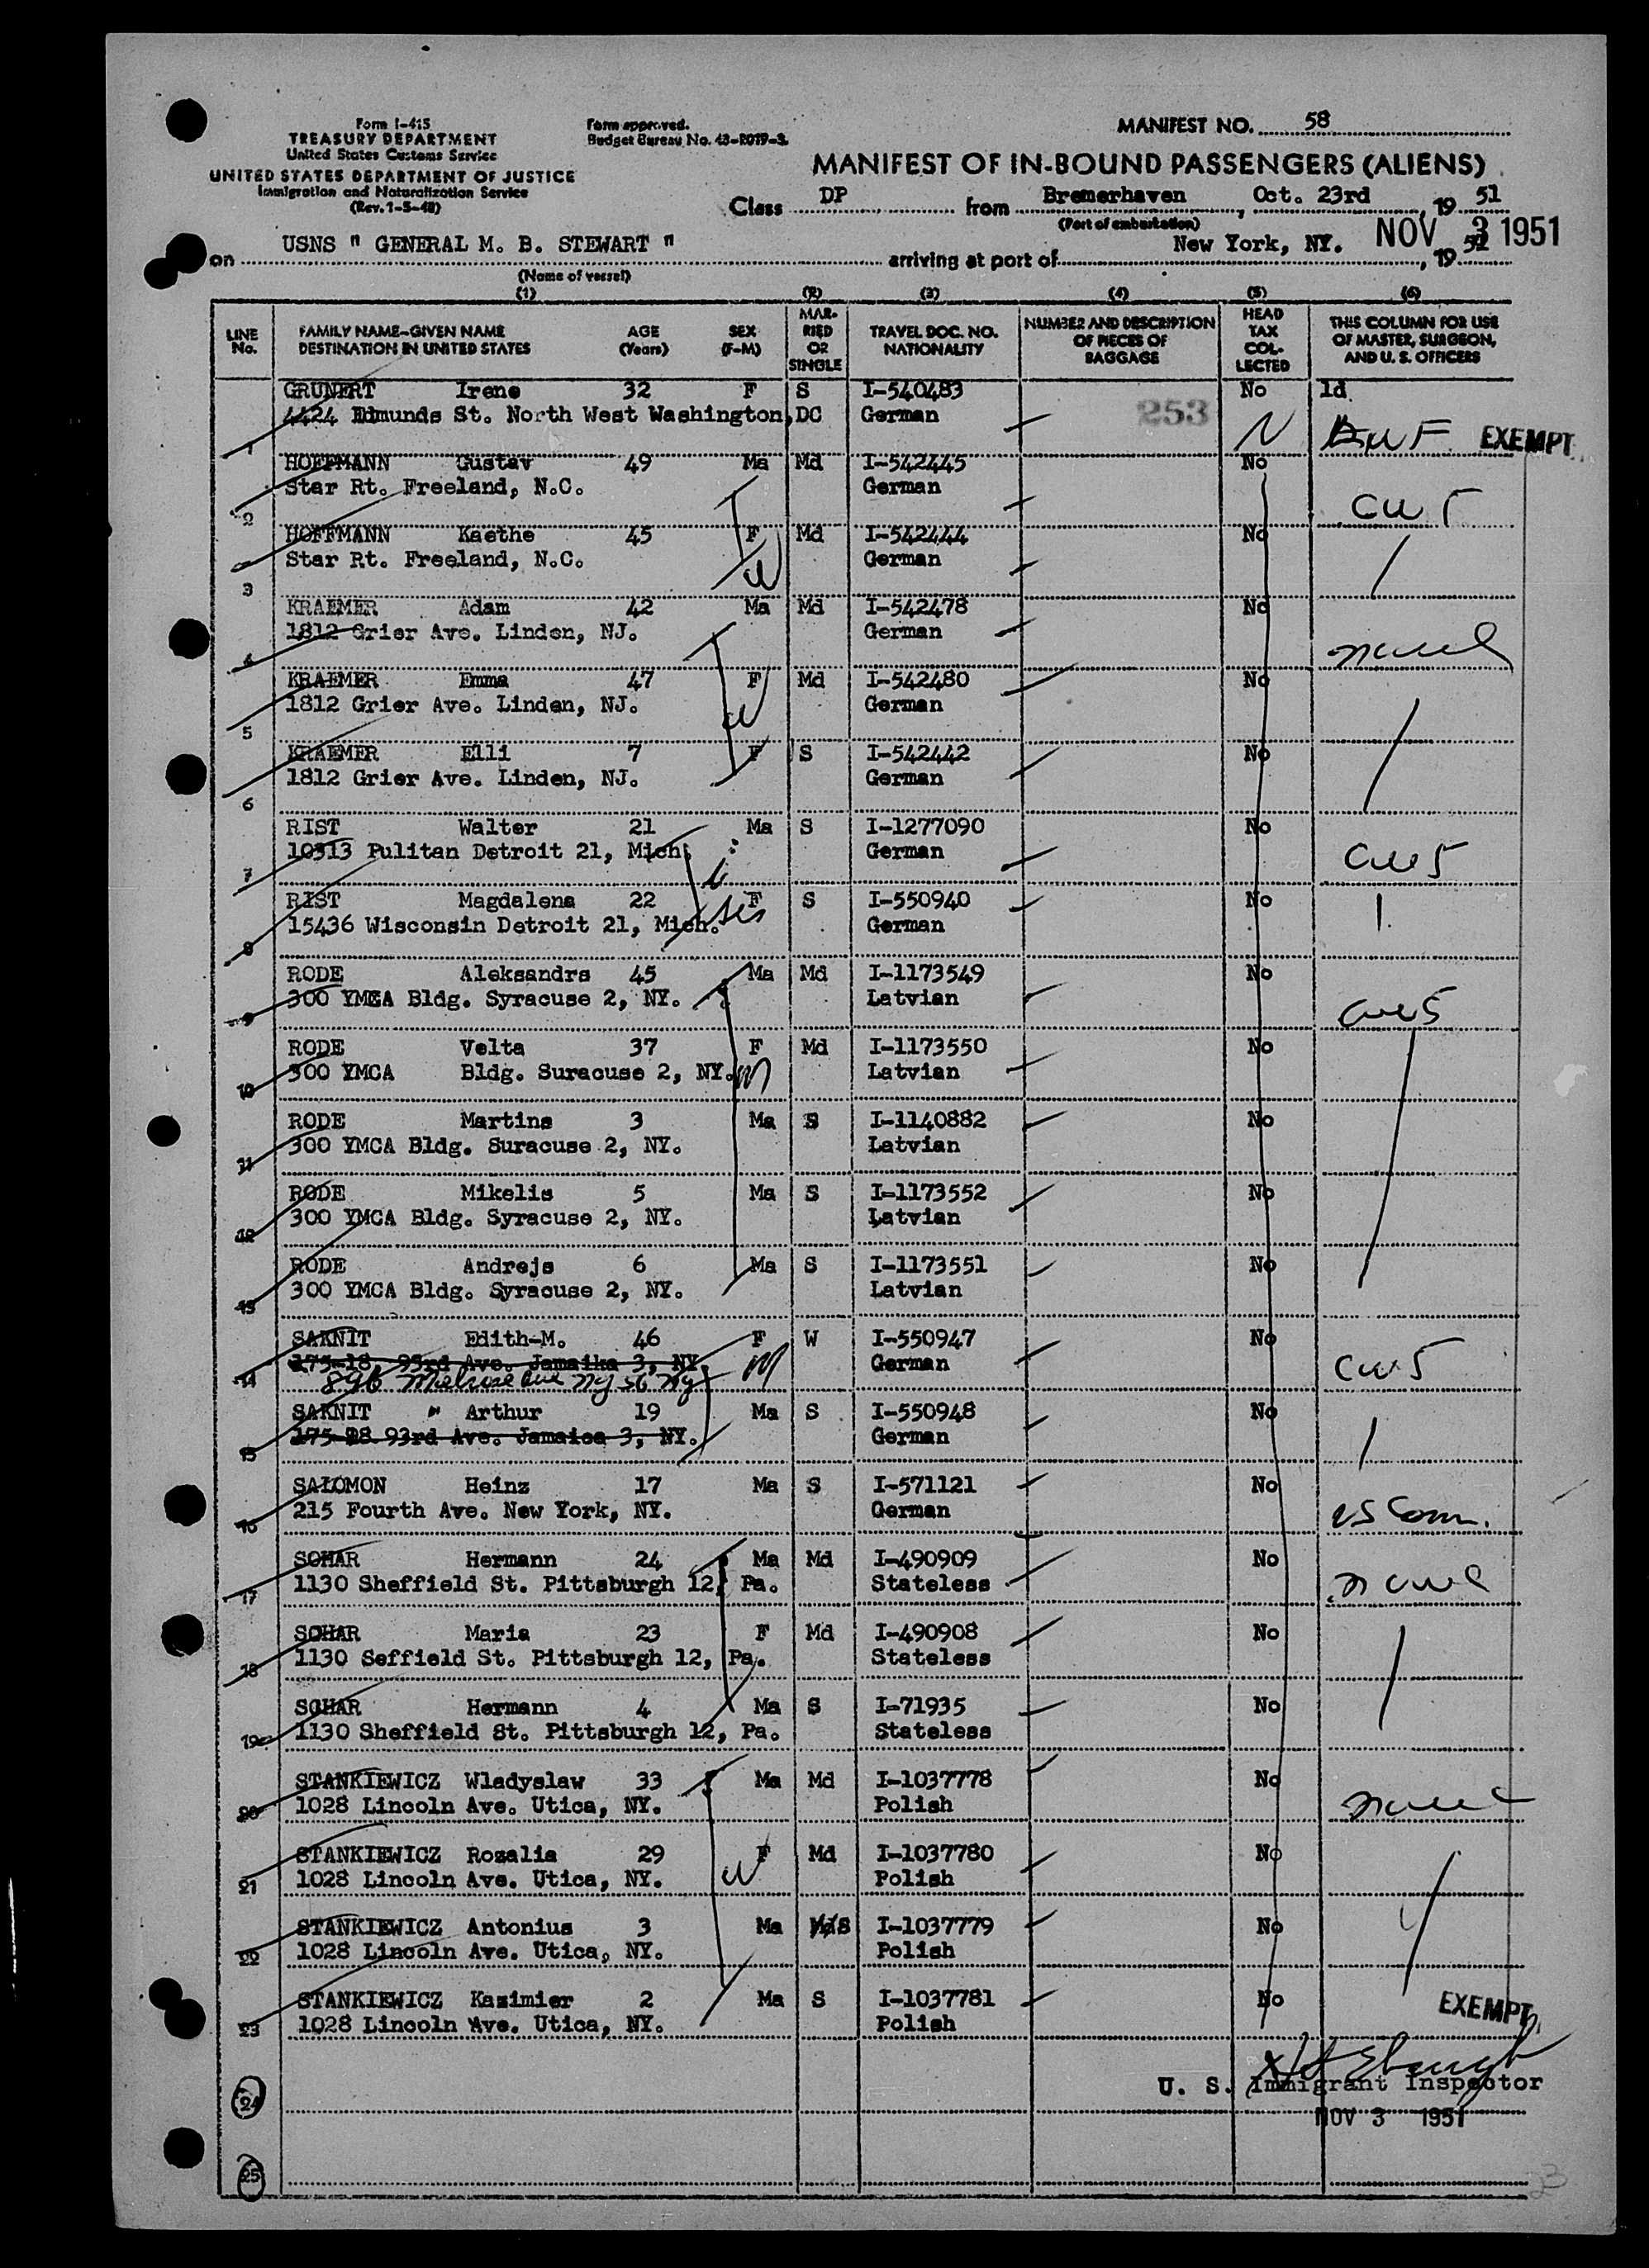 Form I-415
TREASURY DEPARTMENT
United States Customs Service
UNITED STATES DEPARTMENT OF JUSTICE
Immigration and Naturalization Service
(Rev. 1-5-48)
Form approved.
Budget Bureau No. 43-R019-3.
MANIFEST NO. 58
MANIFEST OF IN-BOUND PASSENGERS (ALIENS)
Class DP from Bremerhaven, Oct. 23rd, 19 51
(Port of embarkation)
on USNS " GENERAL M. B. STEWART " arriving at port of New York, NY. NOV 3 1951, 19
(Name of vessel)
(1) (2) (3) (4) (5) (6)
LINE No. FAMILY NAME-GIVEN NAME DESTINATION IN UNITED STATES AGE (Years) SEX (F-M) MARRIED OR SINGLE TRAVEL DOC. NO. NATIONALITY NUMBER AND DESCRIPTION OF PIECES OF BAGGAGE HEAD TAX COLLECTED THIS COLUMN FOR USE OF MASTER, SURGEON, AND U. S. OFFICERS
GRUNERT Irene 32 F S I-540483 No ld
4424 Edmunds St. North West Washington, DC German 253
1 N EXEMPT
HOFFMANN Gustav 49 Ma Md I-542445 No
Star Rt. Freeland, N.C. German
2
HOFFMANN Kaethe 45 F Md I-542444 No
Star Rt. Freeland, N.C. German
3
KRAEMER Adam 42 Ma Md I-542478 No
1812 Grier Ave. Linden, NJ. German
4
KRAEMER Emma 47 F Md I-542480 No
1812 Grier Ave. Linden, NJ. German
5
KRAEMER Elli 7 F S I-542442 No
1812 Grier Ave. Linden, NJ. German
6
RIST Walter 21 Ma S I-1277090 No
10313 Pulitan Detroit 21, Mich. German
7
RIST Magdalena 22 F S I-550940 No
15436 Wisconsin Detroit 21, Mich. German
8
RODE Aleksandrs 45 Ma Md I-1173549 No
300 YMCA Bldg. Syracuse 2, NY. Latvian
9
RODE Velta 37 F Md I-1173550 No
300 YMCA Bldg. Suracuse 2, NY. Latvian
10
RODE Martins 3 Ma S I-1140882 No
300 YMCA Bldg. Suracuse 2, NY. Latvian
11
RODE Mikelis 5 Ma S I-1173552 No
300 YMCA Bldg. Syracuse 2, NY. Latvian
12
RODE Andrejs 6 Ma S I-1173551 No
300 YMCA Bldg. Syracuse 2, NY. Latvian
13
SAKNIT Edith-M. 46 F W I-550947 No
175-18, 93rd Ave. Jamaika 3, NY. German
14 896 Melrose Ave NY 56 Ny
SAKNIT " Arthur 19 Ma S I-550948 No
175-18 93rd Ave. Jamaica 3, NY. German
15
SALOMON Heinz 17 Ma S I-571121 No
215 Fourth Ave. New York, NY. German
16 US Com.
SOHAR Hermann 24 Ma Md I-490909 No
1130 Sheffield St. Pittsburgh 12, Pa. Stateless
17
SOHAR Maria 23 F Md I-490908 No
1130 Seffield St. Pittsburgh 12, Pa. Stateless
18
SOHAR Hermann 4 Ma S I-71935 No
1130 Sheffield St. Pittsburgh 12, Pa. Stateless
19
STANKIEWICZ Wladyslaw 33 Ma Md I-1037778 No
1028 Lincoln Ave. Utica, NY. Polish
20
STANKIEWICZ Rozalia 29 F Md I-1037780 No
1028 Lincoln Ave. Utica, NY. Polish
21
STANKIEWICZ Antonius 3 Ma Md S I-1037779 No
1028 Lincoln Ave. Utica, NY. Polish
22
STANKIEWICZ Kazimier 2 Ma S I-1037781 No
1028 Lincoln Ave. Utica, NY. Polish EXEMPT
23
U. S. Immigrant Inspector
24
NOV 3 1951
25
23